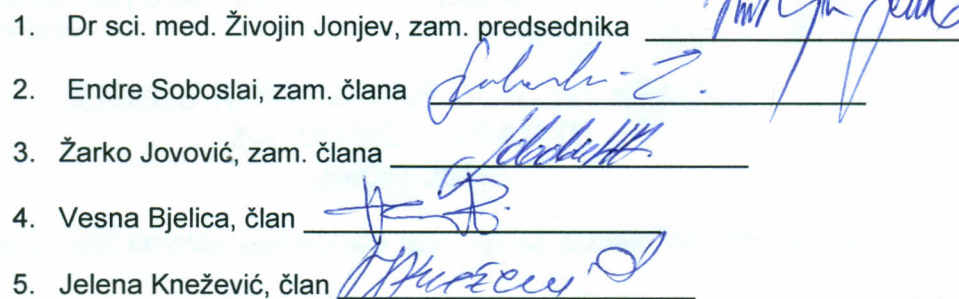 1. Dr sci. med. Živojin Jonjev, zam. predsednika
2. Endre Soboslai, zam. člana
3. Žarko Jovović, zam. člana
4. Vesna Bjelica, član
5. Jelena Knežević, član